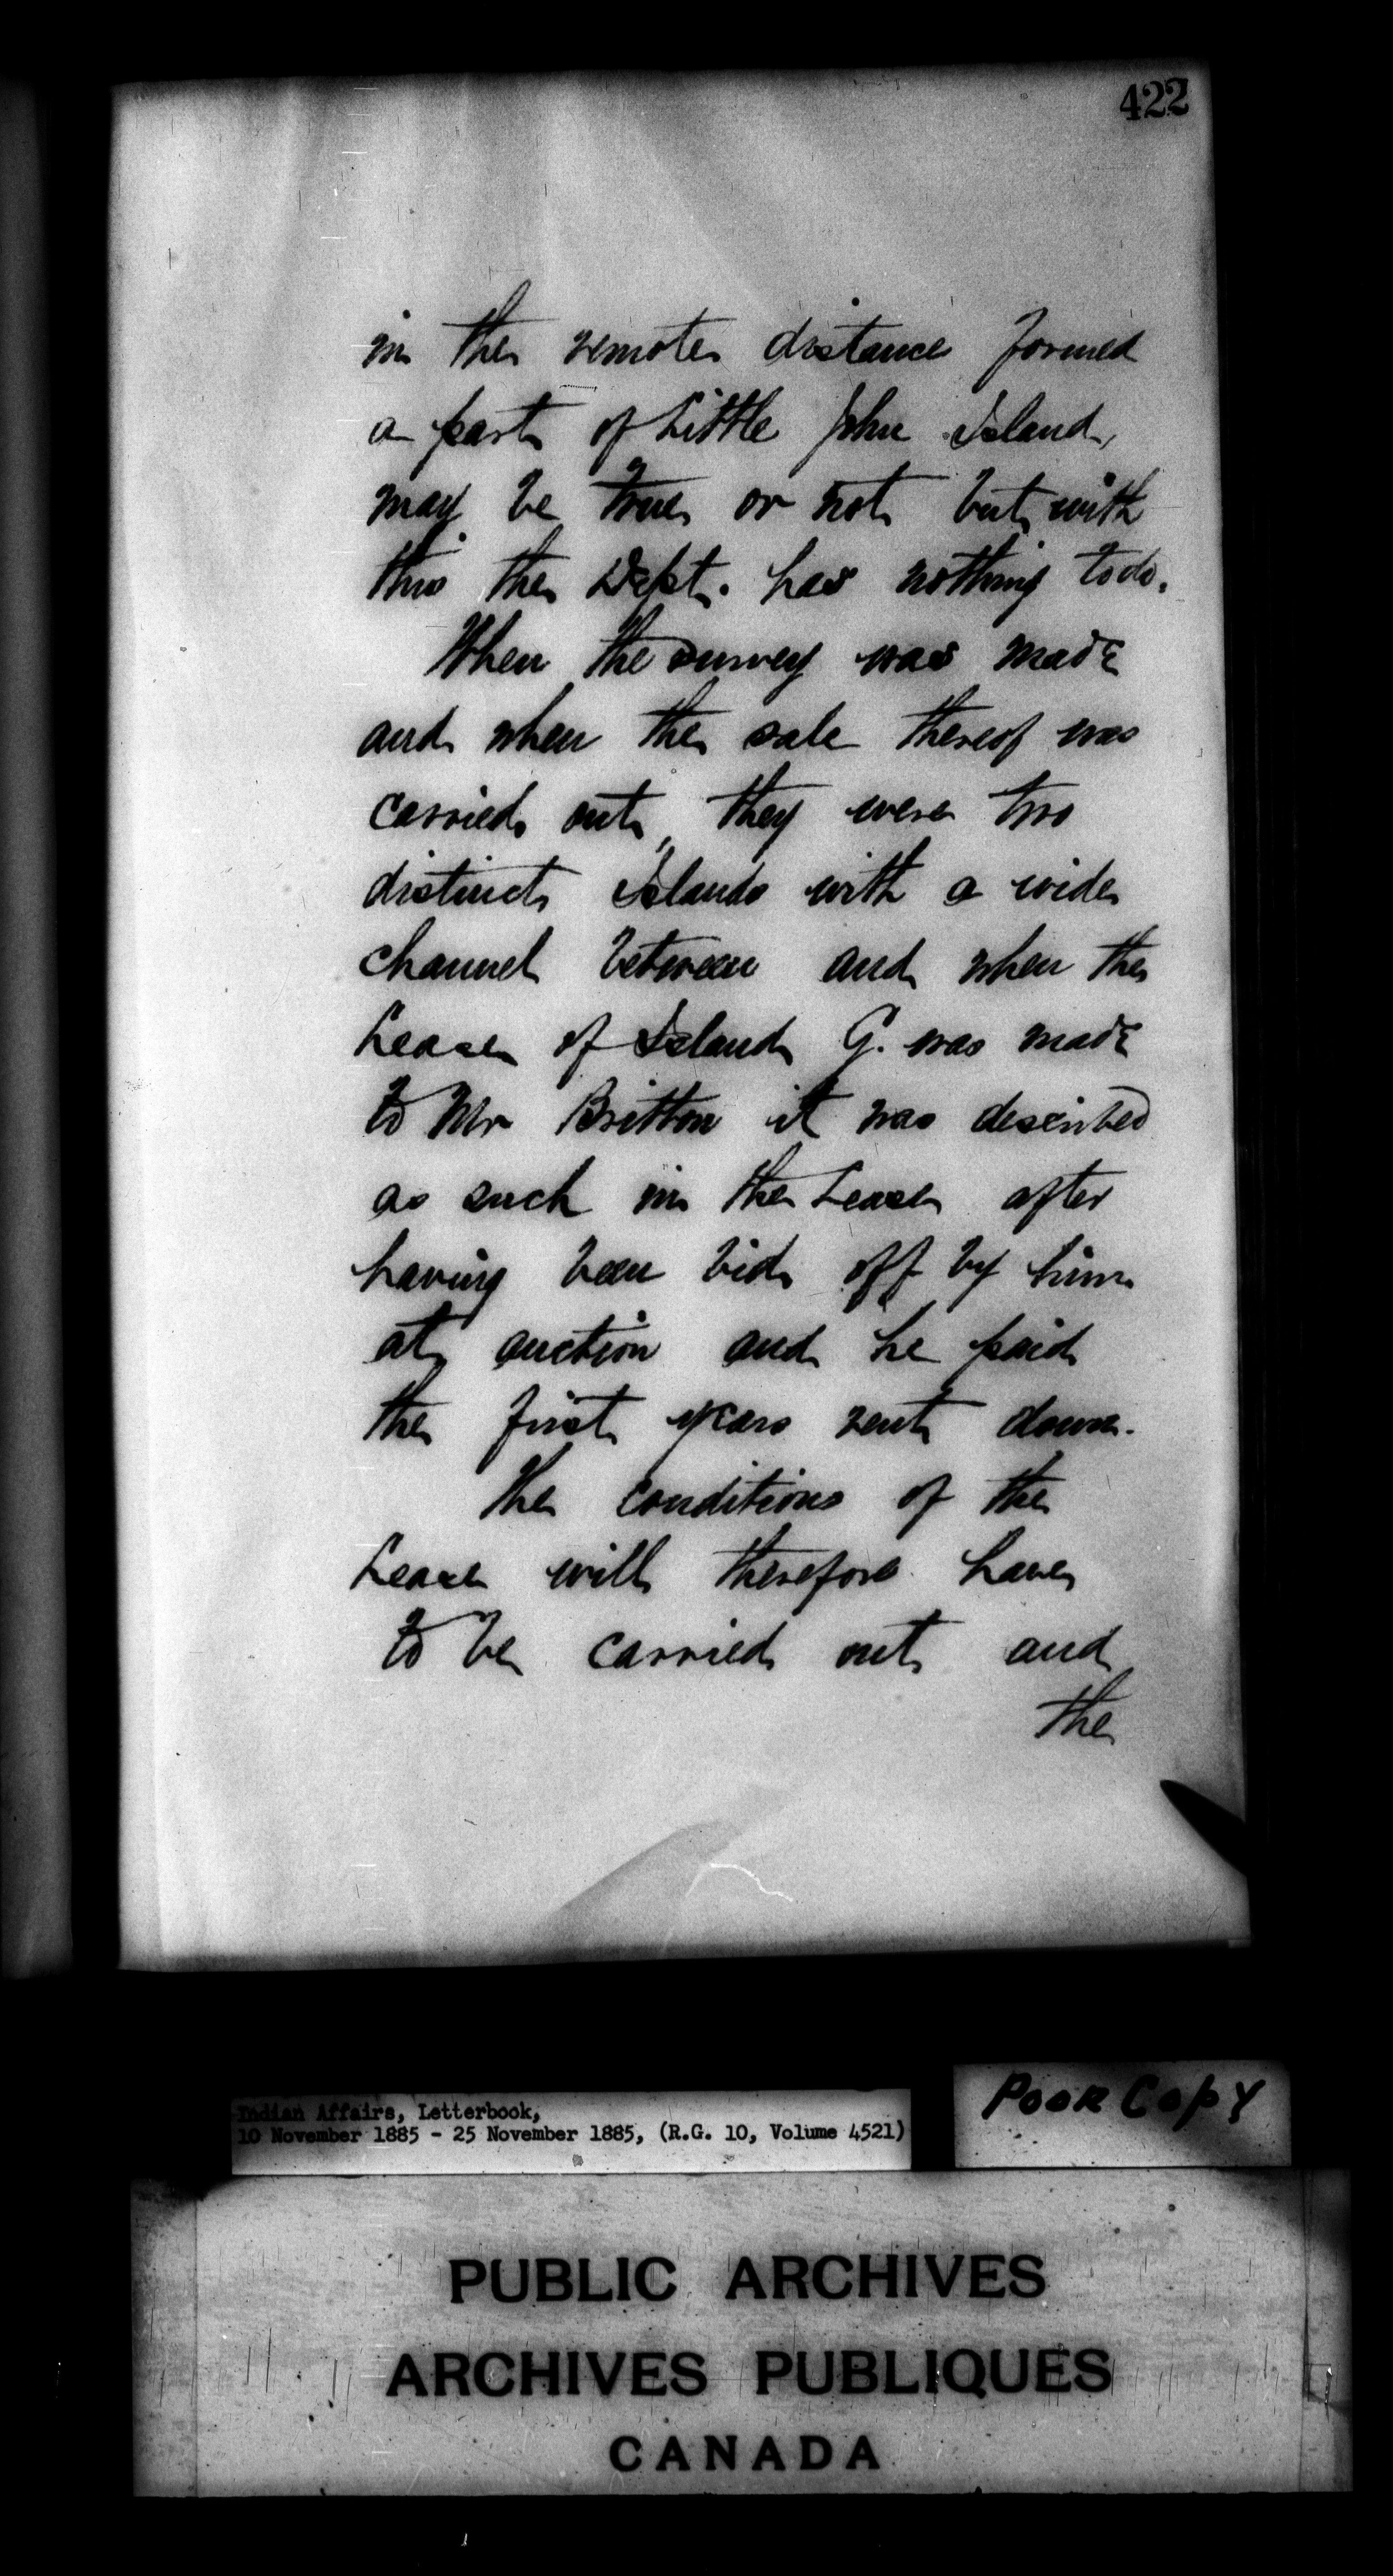 422
in the remote distance formed
a part of Little John Island,
may be true or not but with
this the Dept. has nothing to do.
When the survey was made
and when the sale thereof was
carried out, they were two
distinct Islands with a wide
channel between and when the
Lease of Island G. was made
to Mr Britton it was described
as such in the Lease after
having been bid off by him
at auction and he paid
the first years rent down.
The conditions of the
Lease will therefore have
to be carried out and
the
Poor Copy
Indian Affairs, Letterbook,
10 November 1885 - 25 November 1885, (R.G. 10, Volume 4521)
PUBLIC ARCHIVES
ARCHIVES PUBLIQUES
CANADA